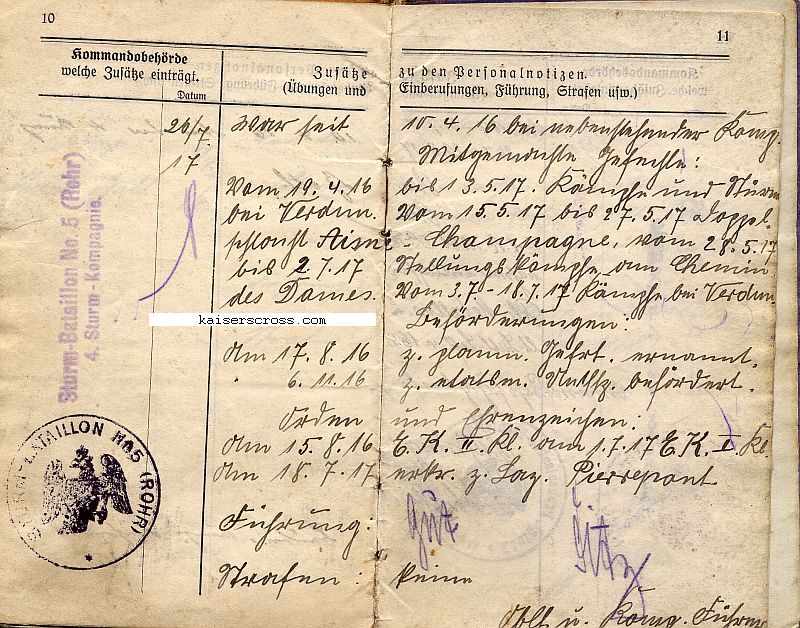 10
11
Kommandobehörde
welche Zusätze einträgt.
Datum
Zusätze zu den Personalnotizen.
(Übungen und Einberufungen, Führung, Strafen usw.)
26/7. War seit 10. 4. 16 bei nebenstehender Komp.
17 Mitgemachte Gefechte:
Vom 19. 4. 16 bis 13. 5. 17. Kämpfe und Sturm
bei Verdun. Vom 15. 5. 17 bis 27. 5. 17 Doppel-
schlacht Aisne - Champagne, vom 28. 5. 17
bis 2. 7. 17 Stellungskämpfe am Chemin
des Dames. Vom 3. 7. - 18. 7. 17 Kämpfe bei Verdun.
Beförderungen:
Am 17. 8. 16 z. planm. Gefrt. ernannt.
" 6. 11. 16 z. etatsm. Untffz. befördert.
Orden und Ehrenzeichen:
Am 15. 8. 16 E. K. II. Kl. am 1. 7. 17 E. K. I. Kl.
Am 18. 7. 17 erkr. z. Laz. Pierrepont
Führung: gut
Strafen: keine
Oblt. u. Komp. Führer
Sturm-Bataillon No. 5 (Rohr)
4. Sturm-Kompagnie.
STURM-BATAILLON No 5 (ROHR)
kaiserscross.com